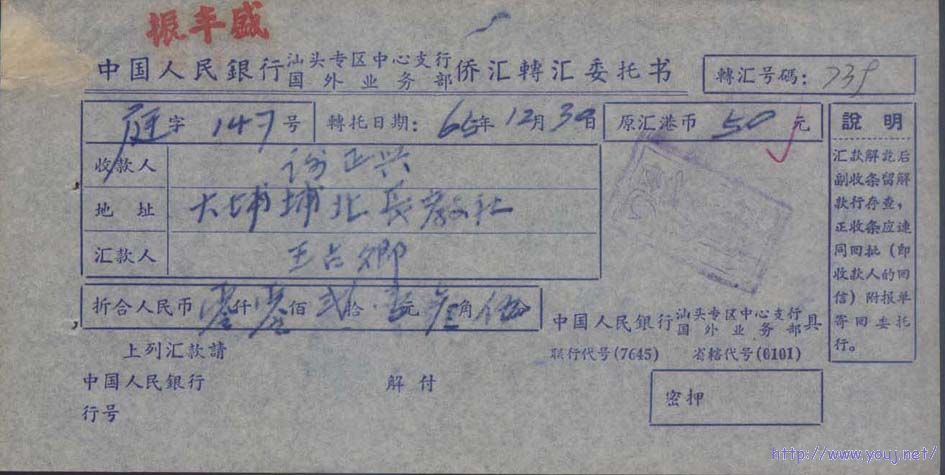 振丰盛
中国人民銀行汕头专区中心支行国外业务部侨汇轉汇委托书
轉汇号碼：739
字 147 号 轉托日期：65年12月30日 原汇港币 50 元
收款人 谢正兴
地址 大埔埔北長教社
汇款人 王占卿
折合人民币 仟 佰 贰拾 元 角
說明
汇款解訖后
副收条留解
款行存查，
正收条应速
同回批（即
收款人的回
信）附报单
寄回委托
行。
中国人民銀行汕头专区中心支行国外业务部具
联行代号(7645) 省辖代号(0101)
上列汇款請
中国人民銀行 解付
行号
密押
http://www.youj.net/